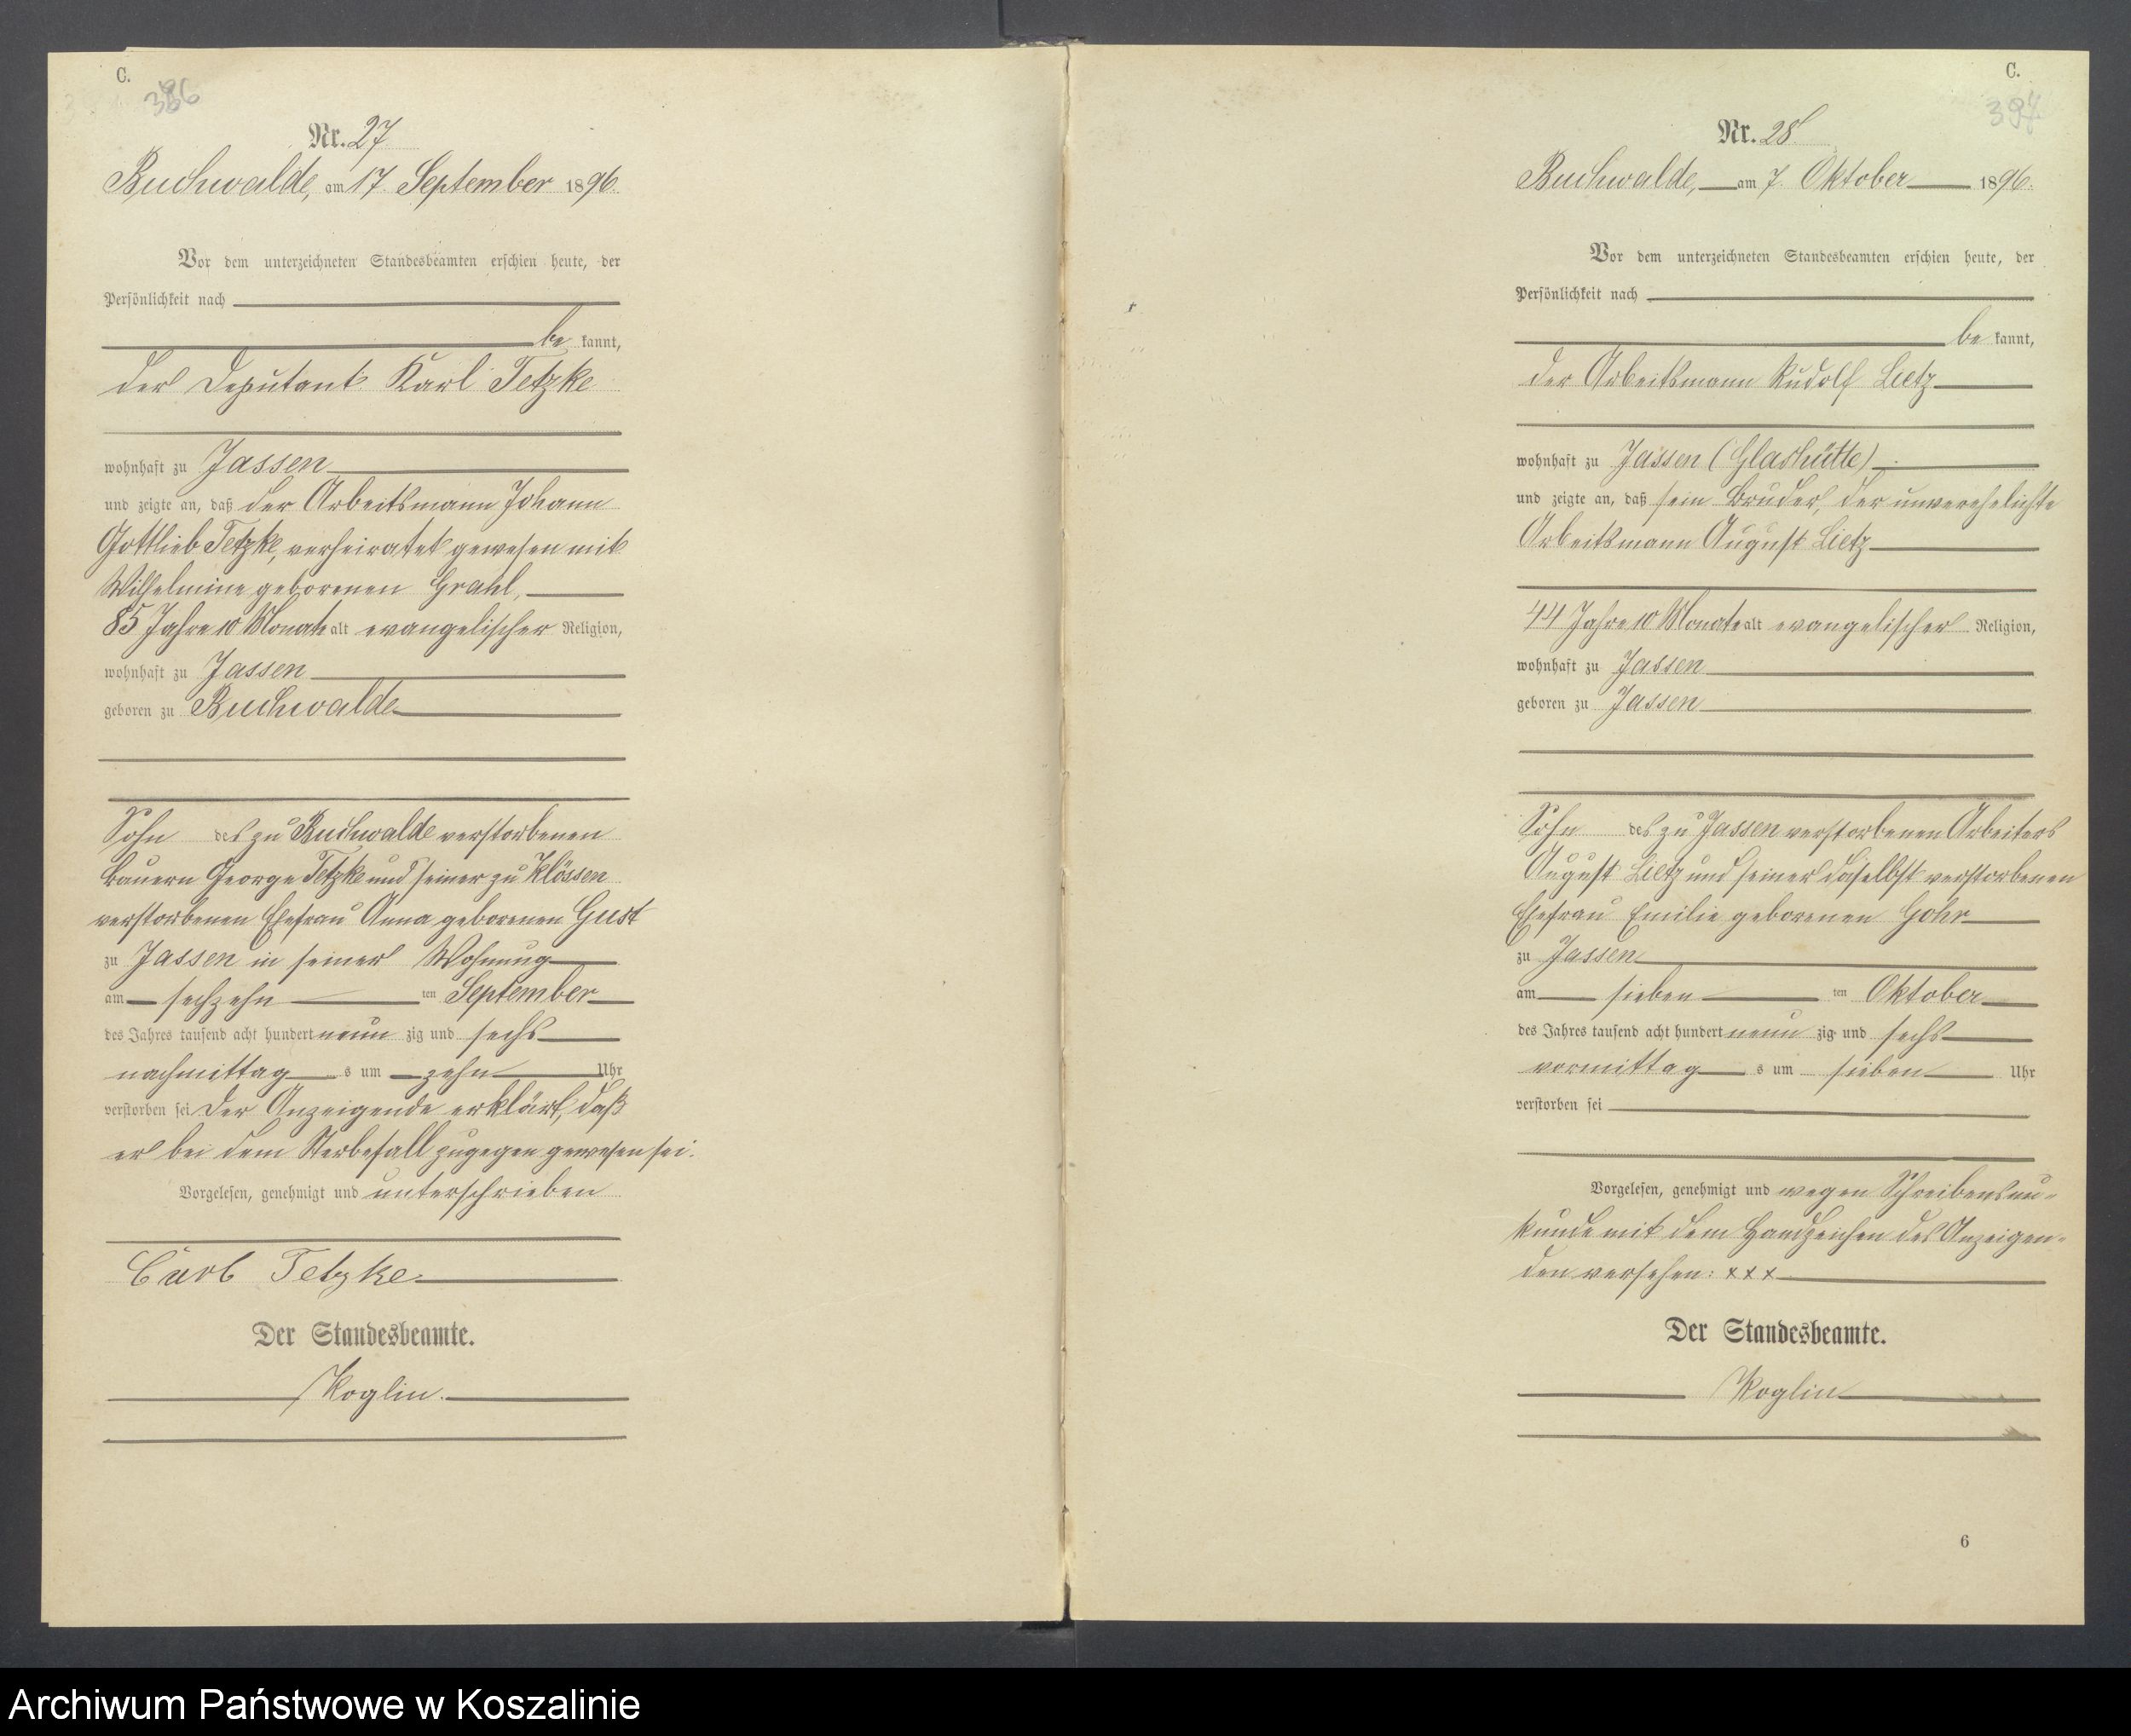 C.
386
Nr. 27
Buchwalde, am 17. September 1896.
Vor dem unterzeichneten Standesbeamten erschien heute, der
Persönlichkeit nach
be kannt,
der Deputant Karl Tetzke
wohnhaft zu Jassen
und zeigte an, daß der Arbeitsmann Johann
Gottlieb Tetzke, verheiratet gewesen mit
Wilhelmine geborenen Grahl,
85 Jahre 10 Monate alt evangelischer Religion,
wohnhaft zu Jassen
geboren zu Buchwalde
Sohn des zu Buchwalde verstorbenen
Bauern George Tetzke und seiner zu Klössen
verstorbenen Ehefrau Anna geborenen Gust
zu Jassen in seiner Wohnung
am sechzehn ten September
des Jahres tausend acht hundert neun zig und sechs
nachmittag s um zehn Uhr
verstorben sei. Der Anzeigende erklärt, daß
er bei dem Sterbefall zugegen gewesen sei.
Vorgelesen, genehmigt und unterschrieben
Carl Tetzke
Der Standesbeamte.
Koglin.
C.
Nr. 28
Buchwalde, am 7. Oktober 1896.
Vor dem unterzeichneten Standesbeamten erschien heute, der
Persönlichkeit nach
be kannt,
der Arbeitsmann Rudolf Lietz
wohnhaft zu Jassen (Glashütte)
und zeigte an, daß sein Bruder, der unverehelichte
Arbeitsmann August Lietz
44 Jahre 10 Monate alt evangelischer Religion,
wohnhaft zu Jassen
geboren zu Jassen
Sohn des zu Jassen verstorbenen Arbeiters
August Lietz und seiner daselbst verstorbenen
Ehefrau Emilie geborenen Gohr
zu Jassen
am sieben ten Oktober
des Jahres tausend acht hundert neun zig und sechs
vormittag s um sieben Uhr
verstorben sei
Vorgelesen, genehmigt und wegen Schreibensun-
kunde mit dem Handzeichen des Anzeigen-
den versehen: xxx
Der Standesbeamte.
Koglin
6
Archiwum Państwowe w Koszalinie